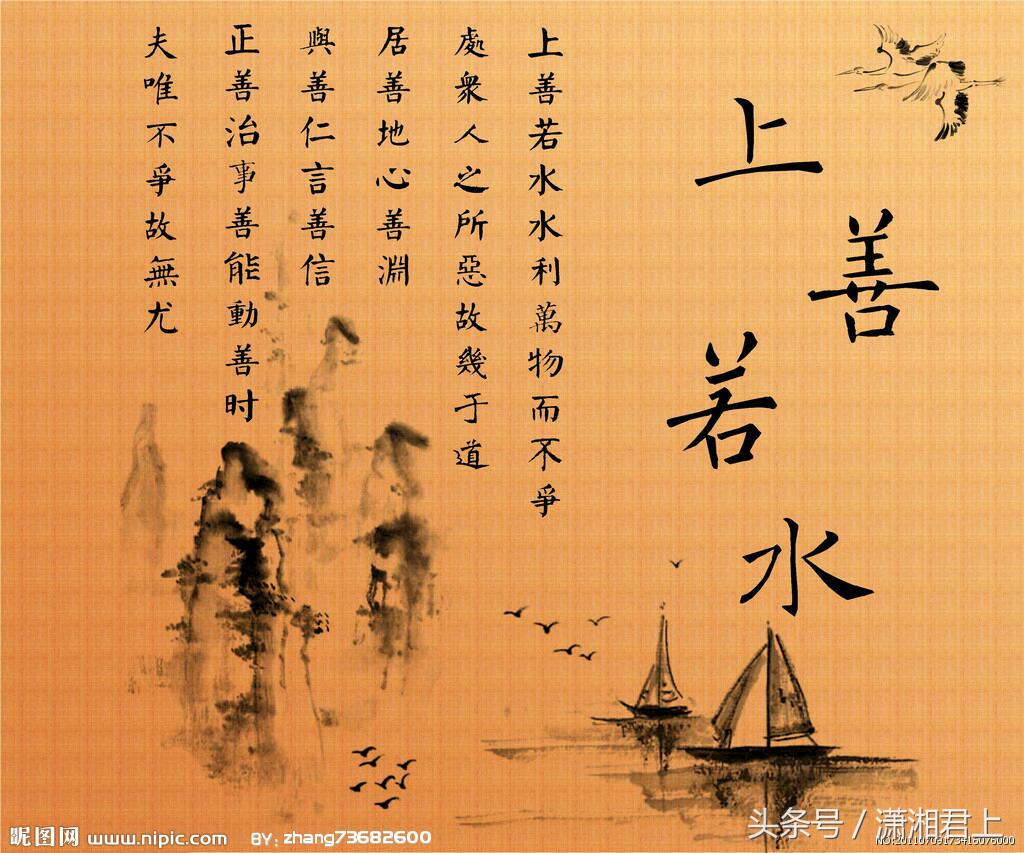 上善若水
上善若水水利萬物而不爭
處衆人之所惡故幾于道
居善地心善淵
與善仁言善信
正善治事善能動善时
夫唯不爭故無尤
昵图网 www.nipic.com BY: zhang73682600
头条号 / 潇湘君上
NO:20110709173416076000